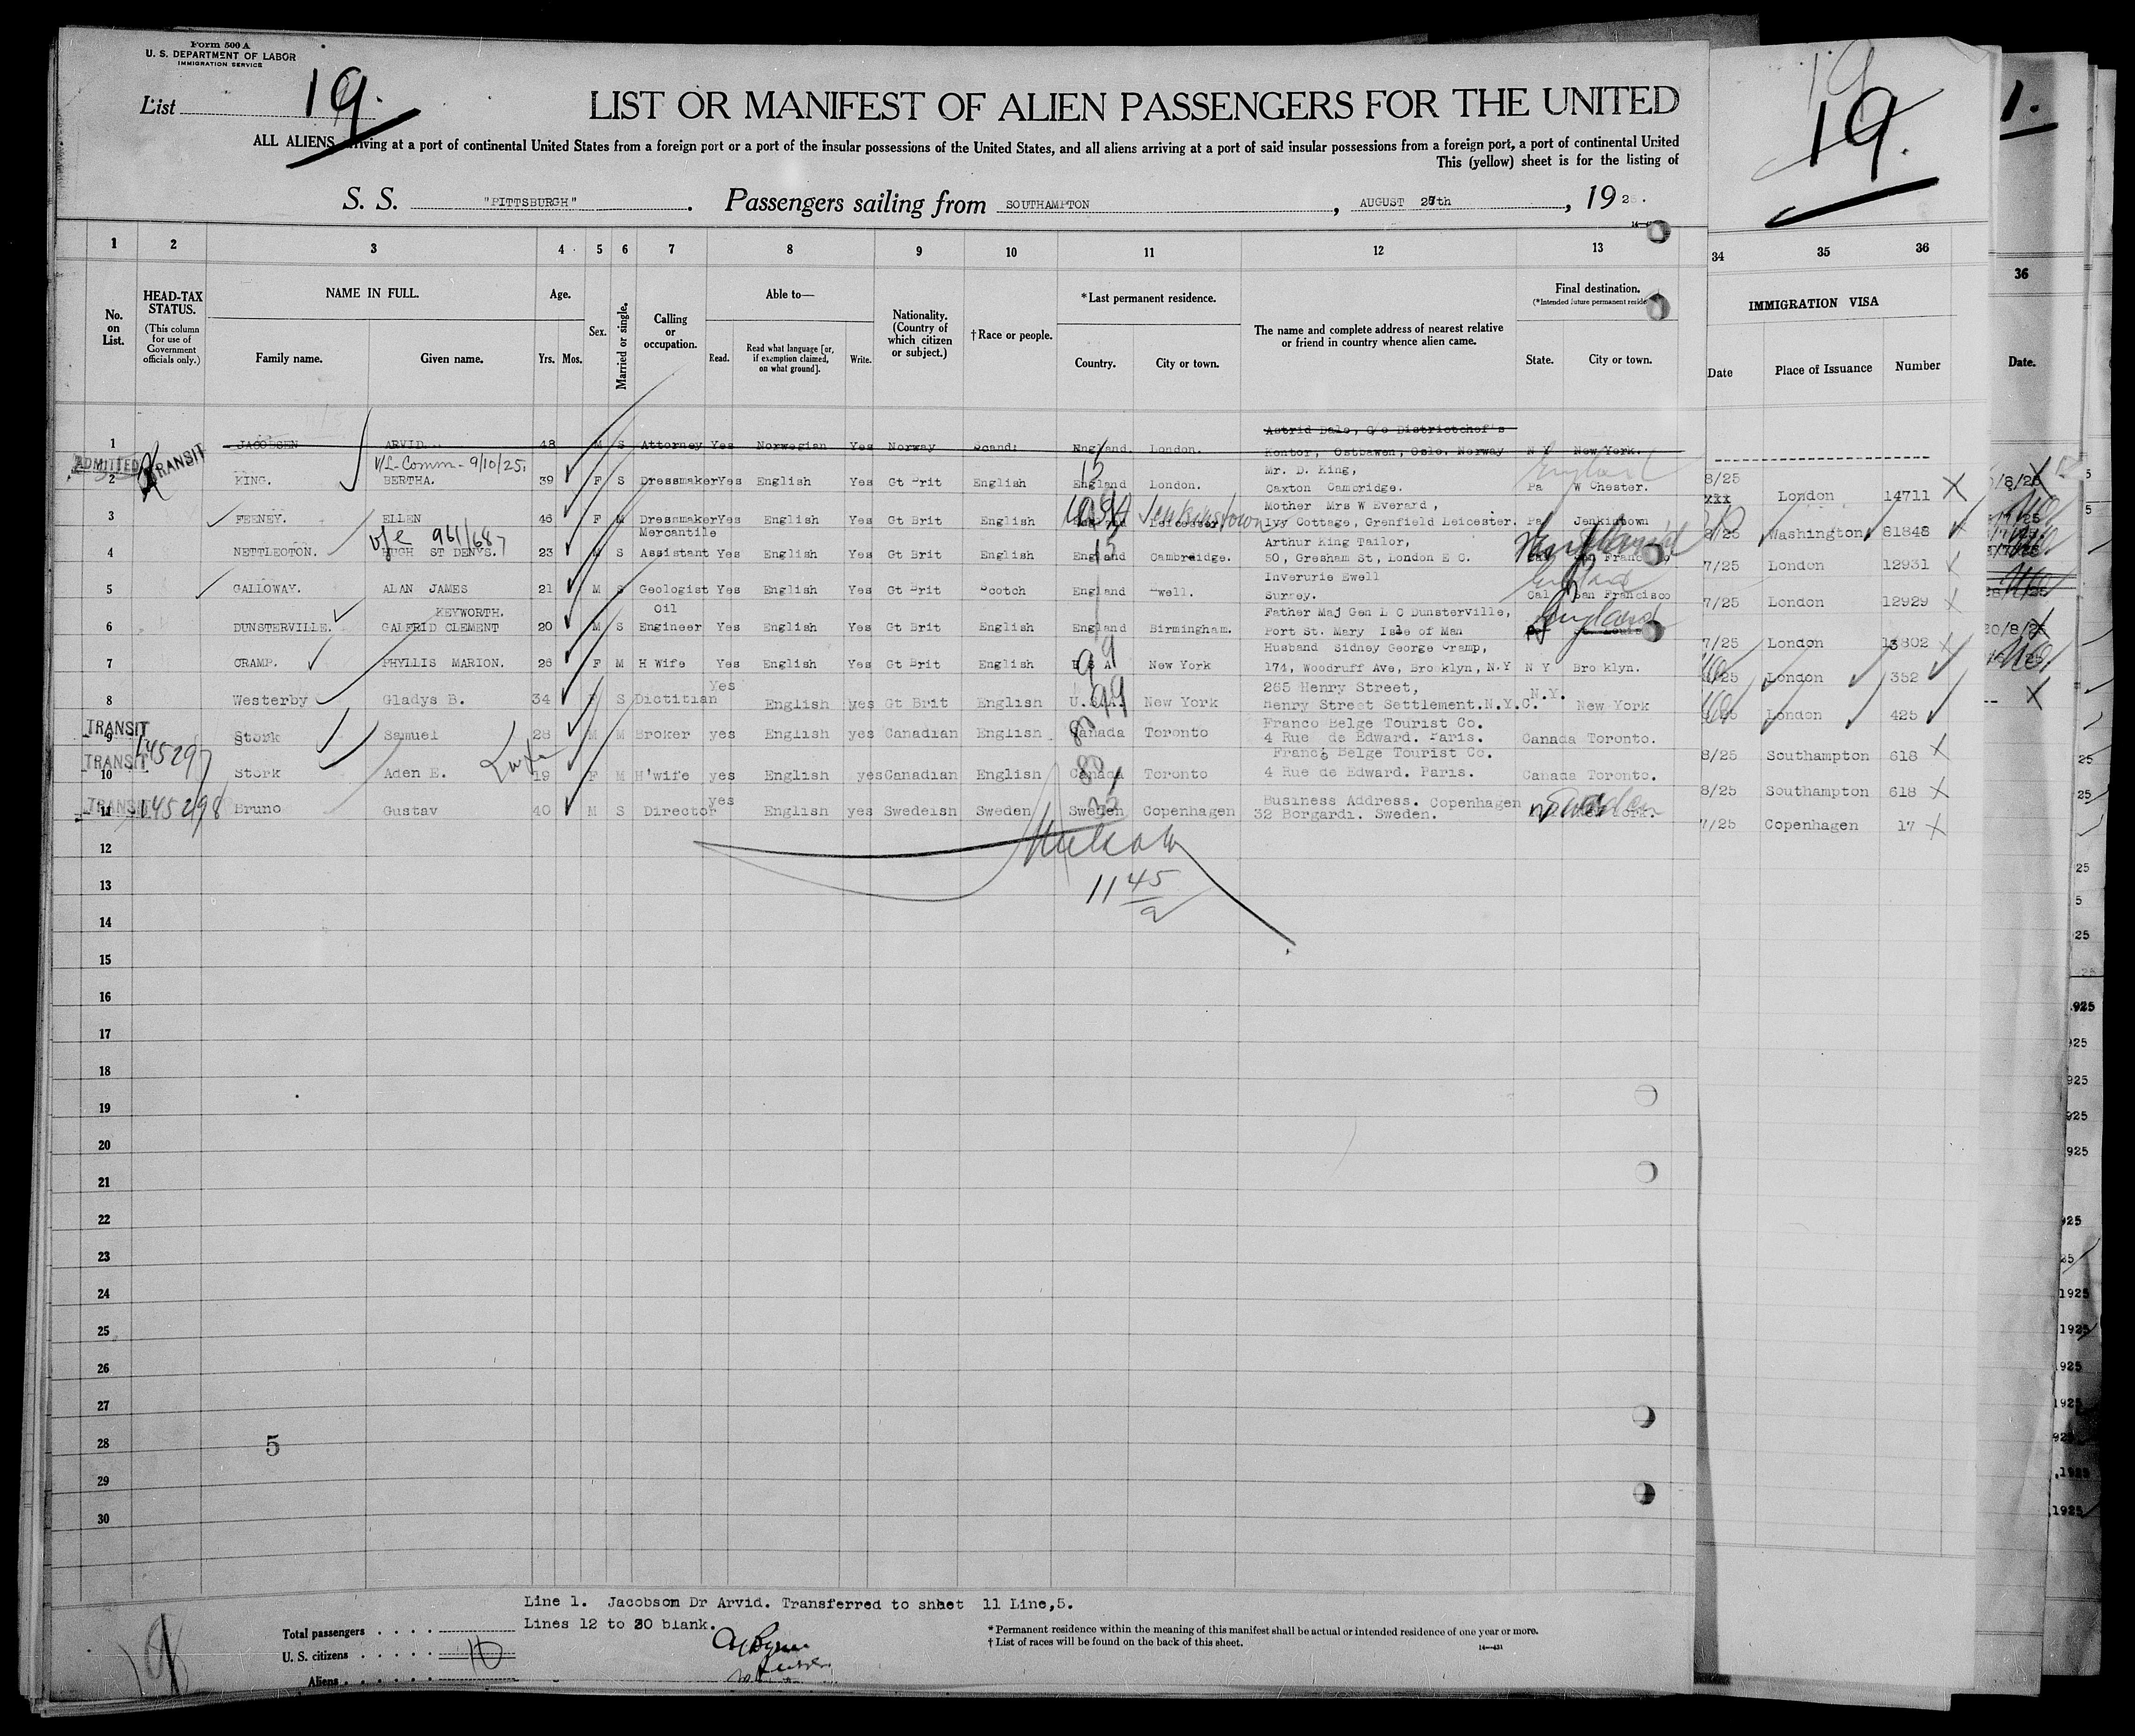 Form 500 A
U. S. DEPARTMENT OF LABOR
IMMIGRATION SERVICE
List 19.
LIST OR MANIFEST OF ALIEN PASSENGERS FOR THE UNITED
ALL ALIENS arriving at a port of continental United States from a foreign port or a port of the insular possessions of the United States, and all aliens arriving at a port of said insular possessions from a foreign port, a port of continental United
This (yellow) sheet is for the listing of
S. S. "PITTSBURGH". Passengers sailing from SOUTHAMPTON, AUGUST 27th, 192
19
19.
1.
1 2 3 4 5 6 7 8 9 10 11 12 13 34 35 36
36
No. on List.
HEAD-TAX STATUS.
(This column for use of Government officials only.)
NAME IN FULL.
Family name. Given name.
Age.
Yrs. Mos.
Sex.
Married or single.
Calling or occupation.
Able to—
Read. Read what language [or, if exemption claimed, on what ground]. Write.
Nationality. (Country of which citizen or subject.)
†Race or people.
*Last permanent residence.
Country. City or town.
The name and complete address of nearest relative or friend in country whence alien came.
Final destination.
(*Intended future permanent reside
State. City or town.
IMMIGRATION VISA
Date Place of Issuance Number
Date.
Astrid Dale, C/o Districtchef's
1 JACOBSEN ARVID. 48 M S Attorney Yes Norwegian Yes Norway Scand: England. London. Kontor, Ostbawen, Oslo. Norway N Y New York.
ADMITTED TRANSIT V/L-Comm-9/10/25. Mr. D. King, England
2 KING. BERTHA. 39 F S Dressmaker Yes English Yes Gt Brit English England London. Caxton Cambridge. Pa W Chester. 8/25 London 14711
Mother Mrs W Everard,
3 FEENEY. ELLEN 46 F M Dressmaker Yes English Yes Gt Brit English USA Leicester Jenkinstown Ivy Cottage, Grenfield Leicester. Pa Jenkintown 2/25 Washington 81848
v/e 961/687 Mercantile Arthur King Tailor,
4 NETTLEOTON. HUGH ST DENYS. 23 M S Assistant Yes English Yes Gt Brit English England Cambreidge. 50, Gresham St, London E C. 7/25 London 12931
Inverurie Ewell England
5 GALLOWAY. ALAN JAMES 21 M S Geologist Yes English Yes Gt Brit Scotch England Ewell. Surrey. Cal San Francisco 7/25 London 12929
KEYWORTH. Oil Father Maj Gen L C Dunsterville, England
6 DUNSTERVILLE. GALFRID CLEMENT 20 M S Engineer Yes English Yes Gt Brit English England Birmingham. Port St. Mary Isle of Man 7/25 London 13802
Husband Sidney George Cramp,
7 CRAMP. PHYLLIS MARION. 26 F M H Wife Yes English Yes Gt Brit English U S A New York 174, Woodruff Ave, Brooklyn, N.Y N Y Bro klyn. London 352
265 Henry Street,
8 Westerby Gladys B. 34 F S Dictitian Yes English yes Gt Brit English U.S.A. New York Henry Street Settlement.N.Y.C. N.Y. New York London 425
TRANSIT Franco Belge Tourist Co.
9 Stork Samuel 28 M M Broker yes English yes Canadian English Canada Toronto 4 Rue de Edward. Paris. Canada Toronto. 8/25 Southampton 618
TRANSIT 145297 Franco Belge Tourist Co.
10 Stork Aden E. 19 F M H'wife yes English yes Canadian English Canada Toronto 4 Rue de Edward. Paris. Canada Toronto. 8/25 Southampton 618
TRANSIT 145298 Business Address. Copenhagen
11 Bruno Gustav 40 M S Director yes English yes Swedeish Sweden Sweden Copenhagen 32 Borgardi. Sweden. Sweden 7/25 Copenhagen 17
12
13
11 45/a
14
15
16
17
18
19
20
21
22
23
24
25
26
27
28
5
29
30
Line 1. Jacobsom Dr Arvid. Transferred to shhet 11 Line,5.
Lines 12 to 30 blank.
Total passengers
U. S. citizens 10
Aliens
* Permanent residence within the meaning of this manifest shall be actual or intended residence of one year or more.
† List of races will be found on the back of this sheet.
14—431